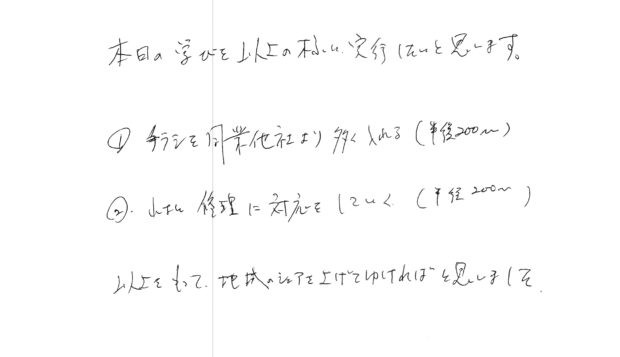 本日の学びを以上の様に実行したいと思います。
① チラシを同業他社より多く入れる (半径200m)
②. 小さい修理に対応をしていく (半径200m)
以上をもって、地域のシェアを上げてゆければと思いました.